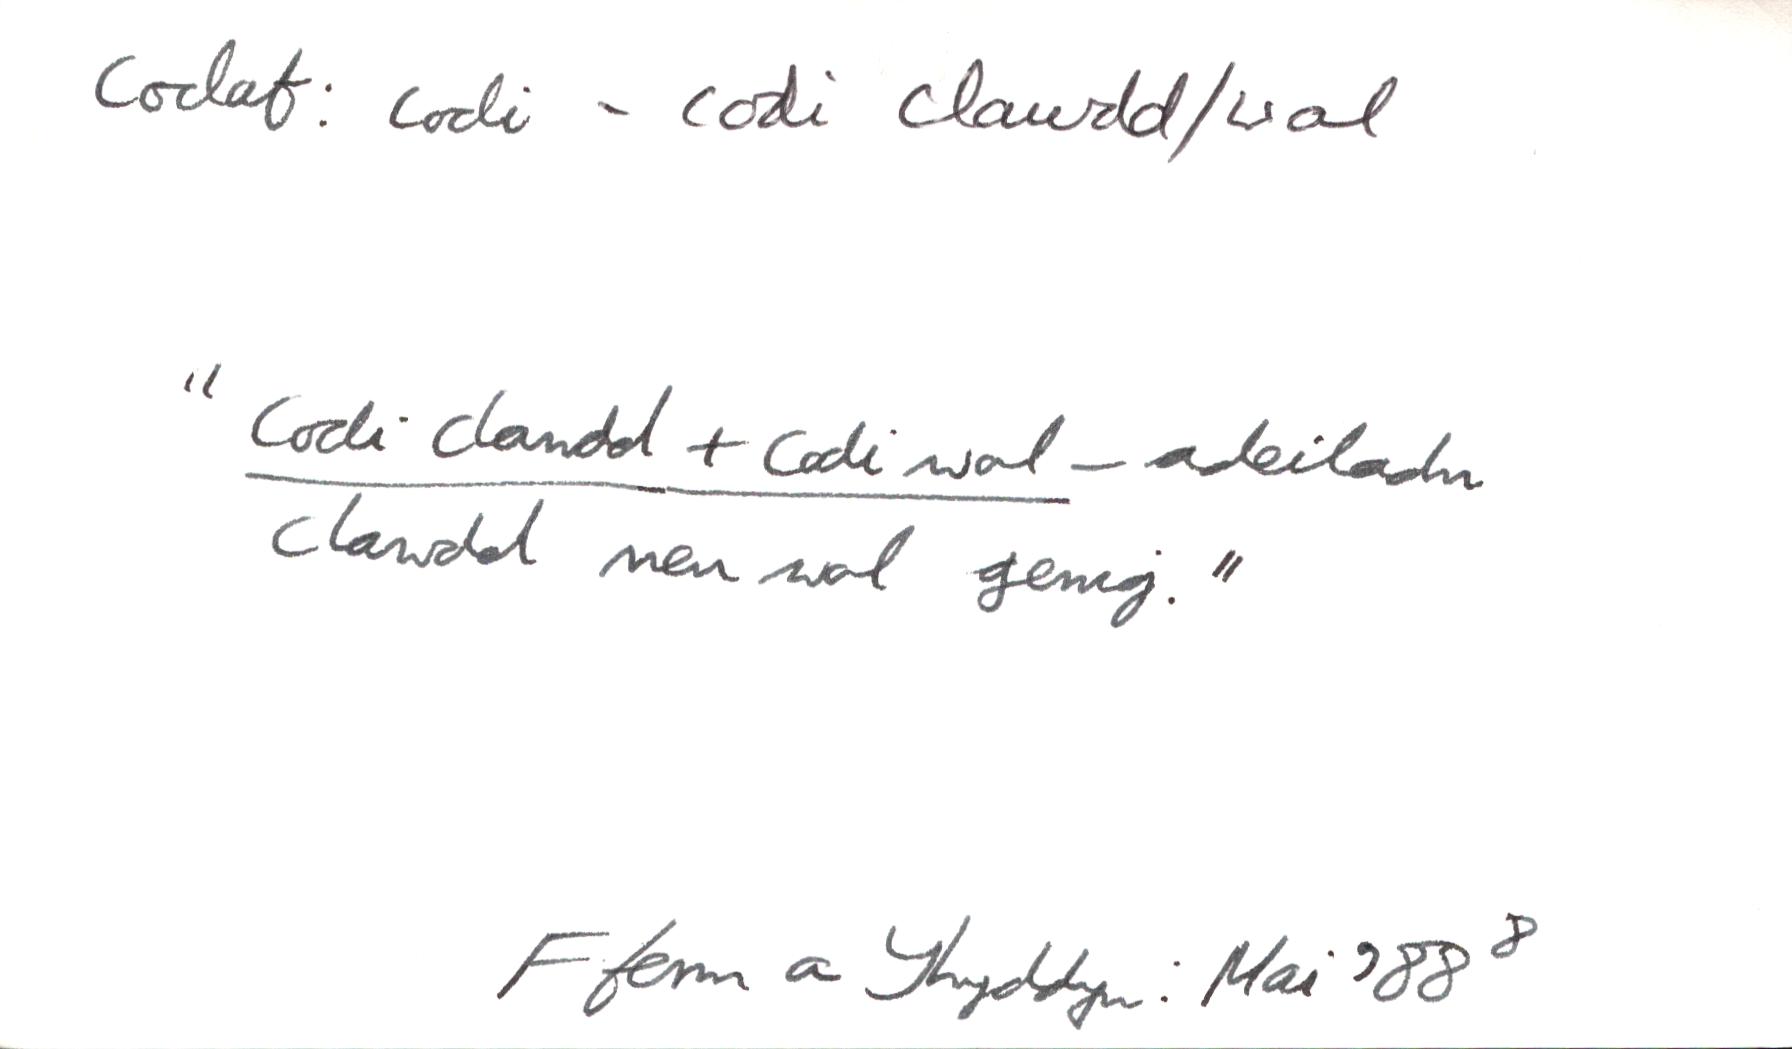 Codaf: codi - codi clawdd/wal
"Codi clawdd + Codi wal - adeiladu
clawdd neu wal gerrig."
Fferm a Thyddyn: Mai '88 8